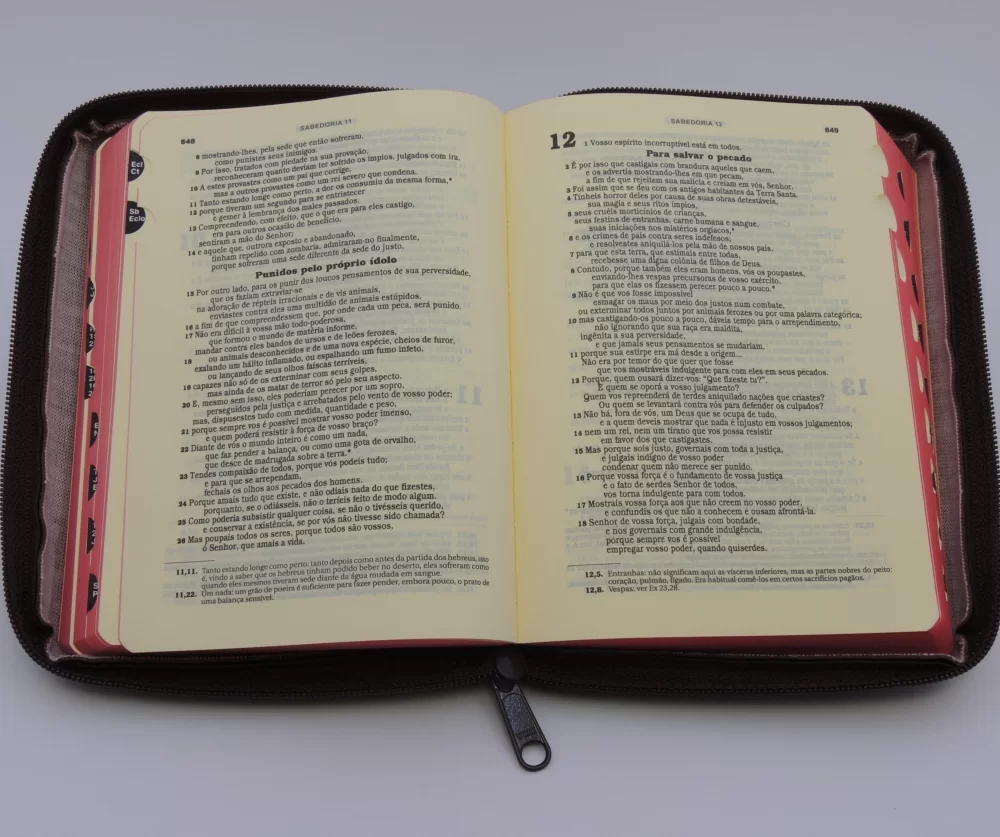 848
SABEDORIA 11
8 mostrando-lhes, pela sede que então sofreram,
como punistes seus inimigos.
9 Por isso, tratados com piedade na sua provação,
reconheceram quanto deviam ter sofrido os ímpios, julgados com ira,
10 A estes provastes como um pai que corrige,
mas a outros provastes como um rei severo que condena.
11 Tanto estando longe como perto, a dor os consumiu da mesma forma,*
12 porque tiveram um segundo para se entristecer
e gemer à lembrança dos males passados.
13 Compreendendo, com efeito, que o que era para eles castigo,
era para outros ocasião de benefício,
sentiram a mão do Senhor;
14 e aquele que, outrora exposto e abandonado,
tinham repelido com zombaria, admiraram-no finalmente,
porque sofreram uma sede diferente da sede do justo.
Punidos pelo próprio ídolo
15 Por outro lado, para os punir dos loucos pensamentos de sua perversidade,
que os faziam extraviar-se
na adoração de répteis irracionais e de vis animais,
enviastes contra eles uma multidão de animais estúpidos,
16 a fim de que compreendessem que, por onde cada um peca, será punido.
17 Não era difícil à vossa mão todo-poderosa,
que formou o mundo de matéria informe,
mandar contra eles bandos de ursos e de leões ferozes,
18 ou animais desconhecidos e de uma nova espécie, cheios de furor,
exalando um hálito inflamado, ou espalhando um fumo infeto,
ou lançando de seus olhos faíscas terríveis,
19 capazes não só de os exterminar com seus golpes,
mas ainda de os matar de terror só pelo seu aspecto.
20 E, mesmo sem isso, eles poderiam perecer por um sopro,
perseguidos pela justiça e arrebatados pelo vento de vosso poder;
mas, dispusestes tudo com medida, quantidade e peso,
21 porque sempre vos é possível mostrar vosso poder imenso,
e quem poderá resistir à força de vosso braço?
22 Diante de vós o mundo inteiro é como um nada,
que faz pender a balança, ou como uma gota de orvalho,
que desce de madrugada sobre a terra.*
23 Tendes compaixão de todos, porque vós podeis tudo;
e para que se arrependam,
fechais os olhos aos pecados dos homens.
24 Porque amais tudo que existe, e não odiais nada do que fizestes,
porquanto, se o odiásseis, não o teríeis feito de modo algum.
25 Como poderia subsistir qualquer coisa, se não o tivésseis querido,
e conservar a existência, se por vós não tivesse sido chamada?
26 Mas poupais todos os seres, porque todos são vossos,
ó Senhor, que amais a vida.
11,11. Tanto estando longe como perto: tanto depois como antes da partida dos hebreus, isto
é, vindo a saber que os hebreus tinham podido beber no deserto, eles sofreram como
quando eles mesmos tiveram sede diante da água mudada em sangue.
11,22. Um nada: um grão de poeira é suficiente para fazer pender, embora pouco, o prato de
uma balança sensível.
Ecl
Ct
Sb
Eclo
SABEDORIA 12
849
12
1 Vosso espírito incorruptível está em todos.
Para salvar o pecado
2 É por isso que castigais com brandura aqueles que caem,
e os advertis mostrando-lhes em que pecam,
a fim de que rejeitem sua malícia e creiam em vós, Senhor.
3 Foi assim que se deu com os antigos habitantes da Terra Santa.
4 Tínheis horror deles por causa de suas obras detestáveis,
sua magia e seus ritos ímpios,
5 seus cruéis morticínios de crianças,
seus festins de entranhas, carne humana e sangue,
suas iniciações nos mistérios orgíacos,*
6 e os crimes de pais contra seres indefesos;
e resolvestes aniquilá-los pela mão de nossos pais,
7 para que esta terra, que estimais entre todas,
recebesse uma digna colônia de filhos de Deus.
8 Contudo, porque também eles eram homens, vós os poupastes,
enviando-lhes vespas precursoras de vosso exército,
para que elas os fizessem perecer pouco a pouco.*
9 Não é que vos fosse impossível
esmagar os maus por meio dos justos num combate,
ou exterminar todos juntos por animais ferozes ou por uma palavra categórica;
10 mas castigando-os pouco a pouco, dáveis tempo para o arrependimento,
não ignorando que sua raça era maldita,
ingênita a sua perversidade,
e que jamais seus pensamentos se mudariam,
11 porque sua estirpe era má desde a origem...
Não era por temor do que quer que fosse
que vos mostráveis indulgente para com eles em seus pecados.
12 Porque, quem ousará dizer-vos: "Que fizeste tu?".
E quem se oporá a vosso julgamento?
Quem vos repreenderá de terdes aniquilado nações que criastes?
Ou quem se levantará contra vós para defender os culpados?
13 Não há, fora de vós, um Deus que se ocupa de tudo,
e a quem deveis mostrar que nada é injusto em vossos julgamentos;
14 nem um rei, nem um tirano que vos possa resistir
em favor dos que castigastes.
15 Mas porque sois justo, governais com toda a justiça,
e julgais indigno de vosso poder
condenar quem não merece ser punido.
16 Porque vossa força é o fundamento de vossa justiça
e o fato de serdes Senhor de todos,
vos torna indulgente para com todos.
17 Mostrais vossa força aos que não creem no vosso poder,
e confundis os que não a conhecem e ousam afrontá-la.
18 Senhor de vossa força, julgais com bondade,
e nos governais com grande indulgência,
porque sempre vos é possível
empregar vosso poder, quando quiserdes.
12,5. Entranhas: não significam aqui as vísceras inferiores, mas as partes nobres do peito:
coração, pulmão, fígado. Era habitual comê-los em certos sacrifícios pagãos.
12,8. Vespas: ver Ex 23,28.